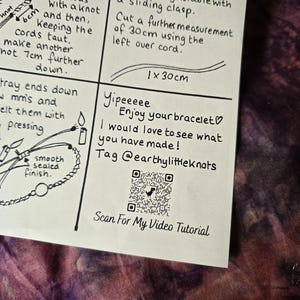 with a knot
and then,
keeping the
cords taut,
make another
knot 7cm further
down.
a sliding clasp.
Cut a further measurement
of 30cm using the
left over cord.
1 x 30cm
tray ends down
mm's and
melt them with
pressing
smooth
sealed
finish.
Yipeeeee
Enjoy your bracelet♡
I would love to see what
you have made!
Tag @earthylittleknots
Scan For My Video Tutorial